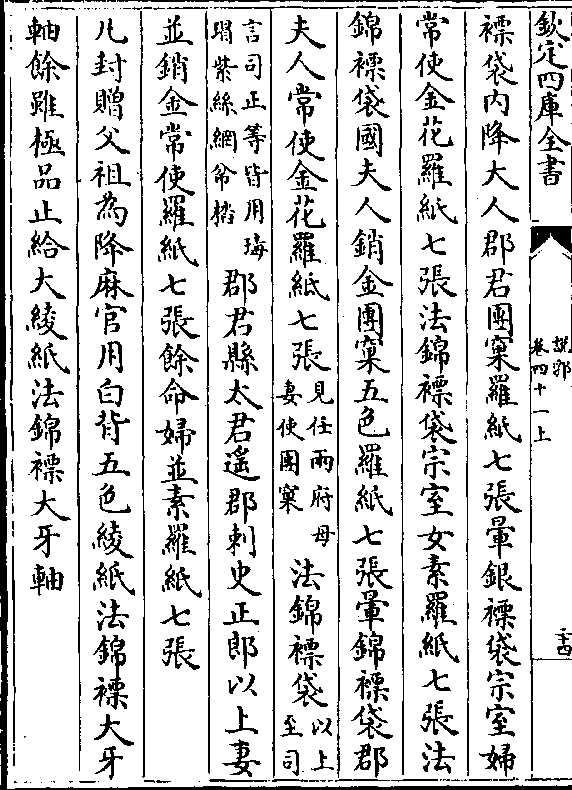 欽定四庫全書
說郛
卷四十一上
二十四
褾袋内降大人郡君團窠羅紙七張暈銀褾袋宗室婦
常使金花羅紙七張法錦褾袋宗室女素羅紙七張法
錦褾袋國夫人銷金團窠五色羅紙七張暈錦褾袋郡
夫人常使金花羅紙七張見任兩府母
妻使團窠
法錦褾袋以上
至司
言司正等皆用
瑇瑁紫絲網
郡君縣太君遥郡刺史正郎以上妻
並銷金常使羅紙七張餘命婦並素羅紙七張
凡封贈父祖為降麻官用白背五色綾紙法錦褾大牙
軸餘雖極品止給大綾紙法錦褾大牙軸